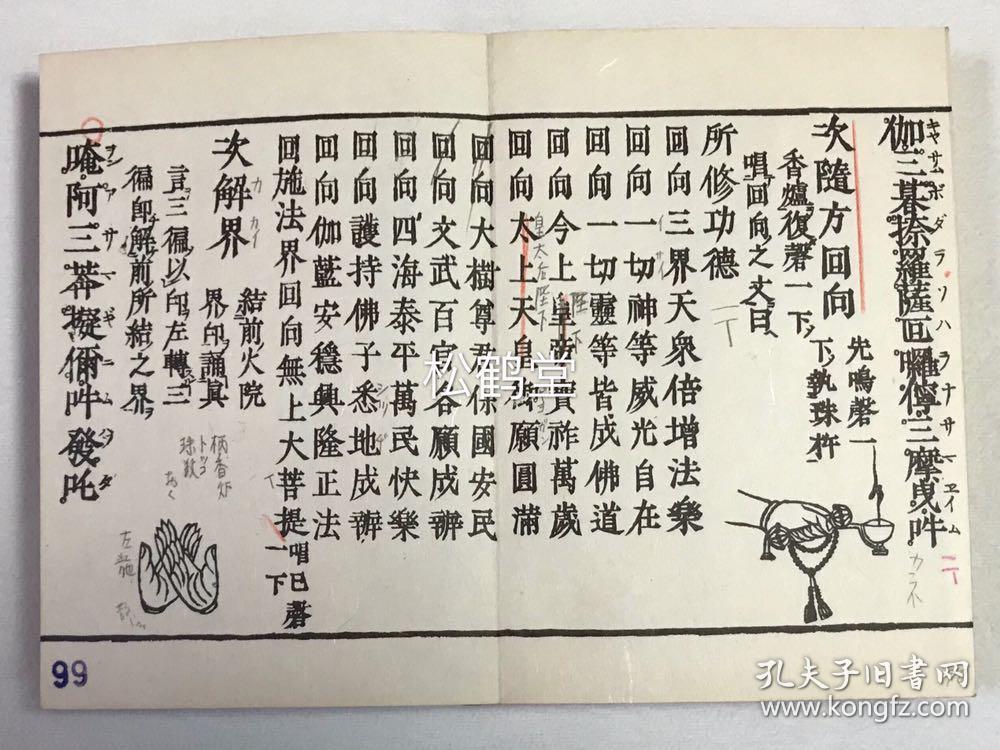 伽三暮捺羅薩
三摩曳吽
次隨方回向
先鳴磬一
下執珠杵
香爐復磬一下
唱回向之文曰
所修功德
回向三界天衆倍增法樂
回向一切神等威光自在
回向一切靈等皆成佛道
回向今上皇帝寶祚萬歲
回向太上天皇御願圓滿
皇太后陛下
陛下
回向大樹尊君保國安民
回向文武百官各願成辨
回向四海泰平萬民快樂
回向護持佛子悉地成辨
回向伽藍安穩興隆正法
回施法界回向無上大菩提
唱已磬
一下
次解界
結前火院
界印誦眞
言三徧以印左轉三
徧卽解前所結之界
柄香炉
トッコ
珠数
おく
唵阿三莽擬儞吽發吒
99
松鹤堂
孔夫子旧书网
www.kongfz.com